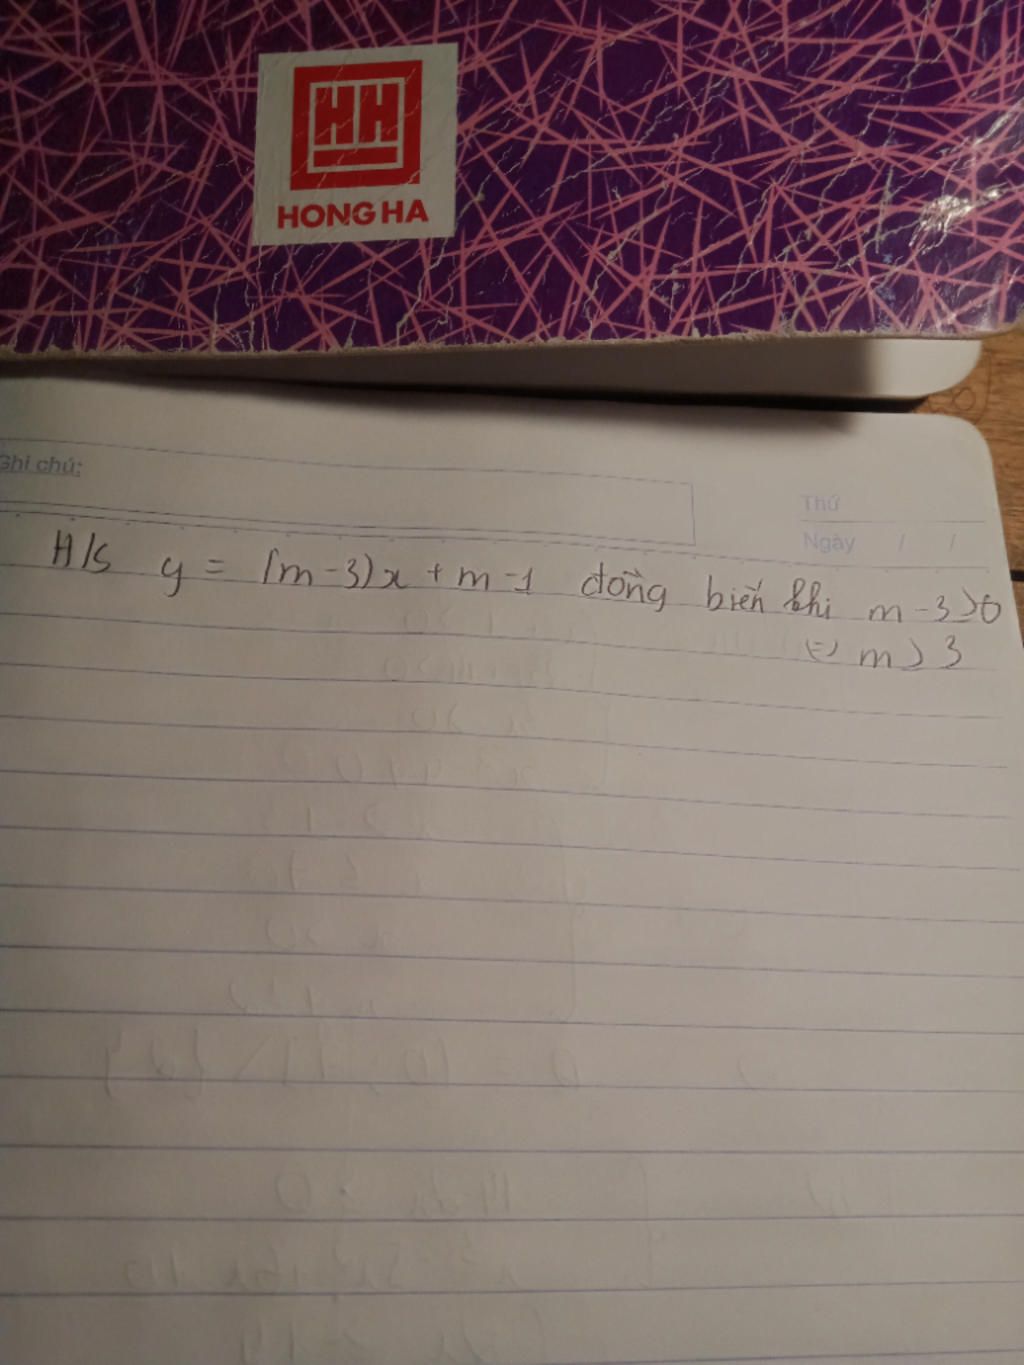 HH
HONG HA
Ghi chú:
Thứ
Ngày / /
H/s y = (m-3)x + m-1 đồng biến khi m-3>0
(=) m > 3